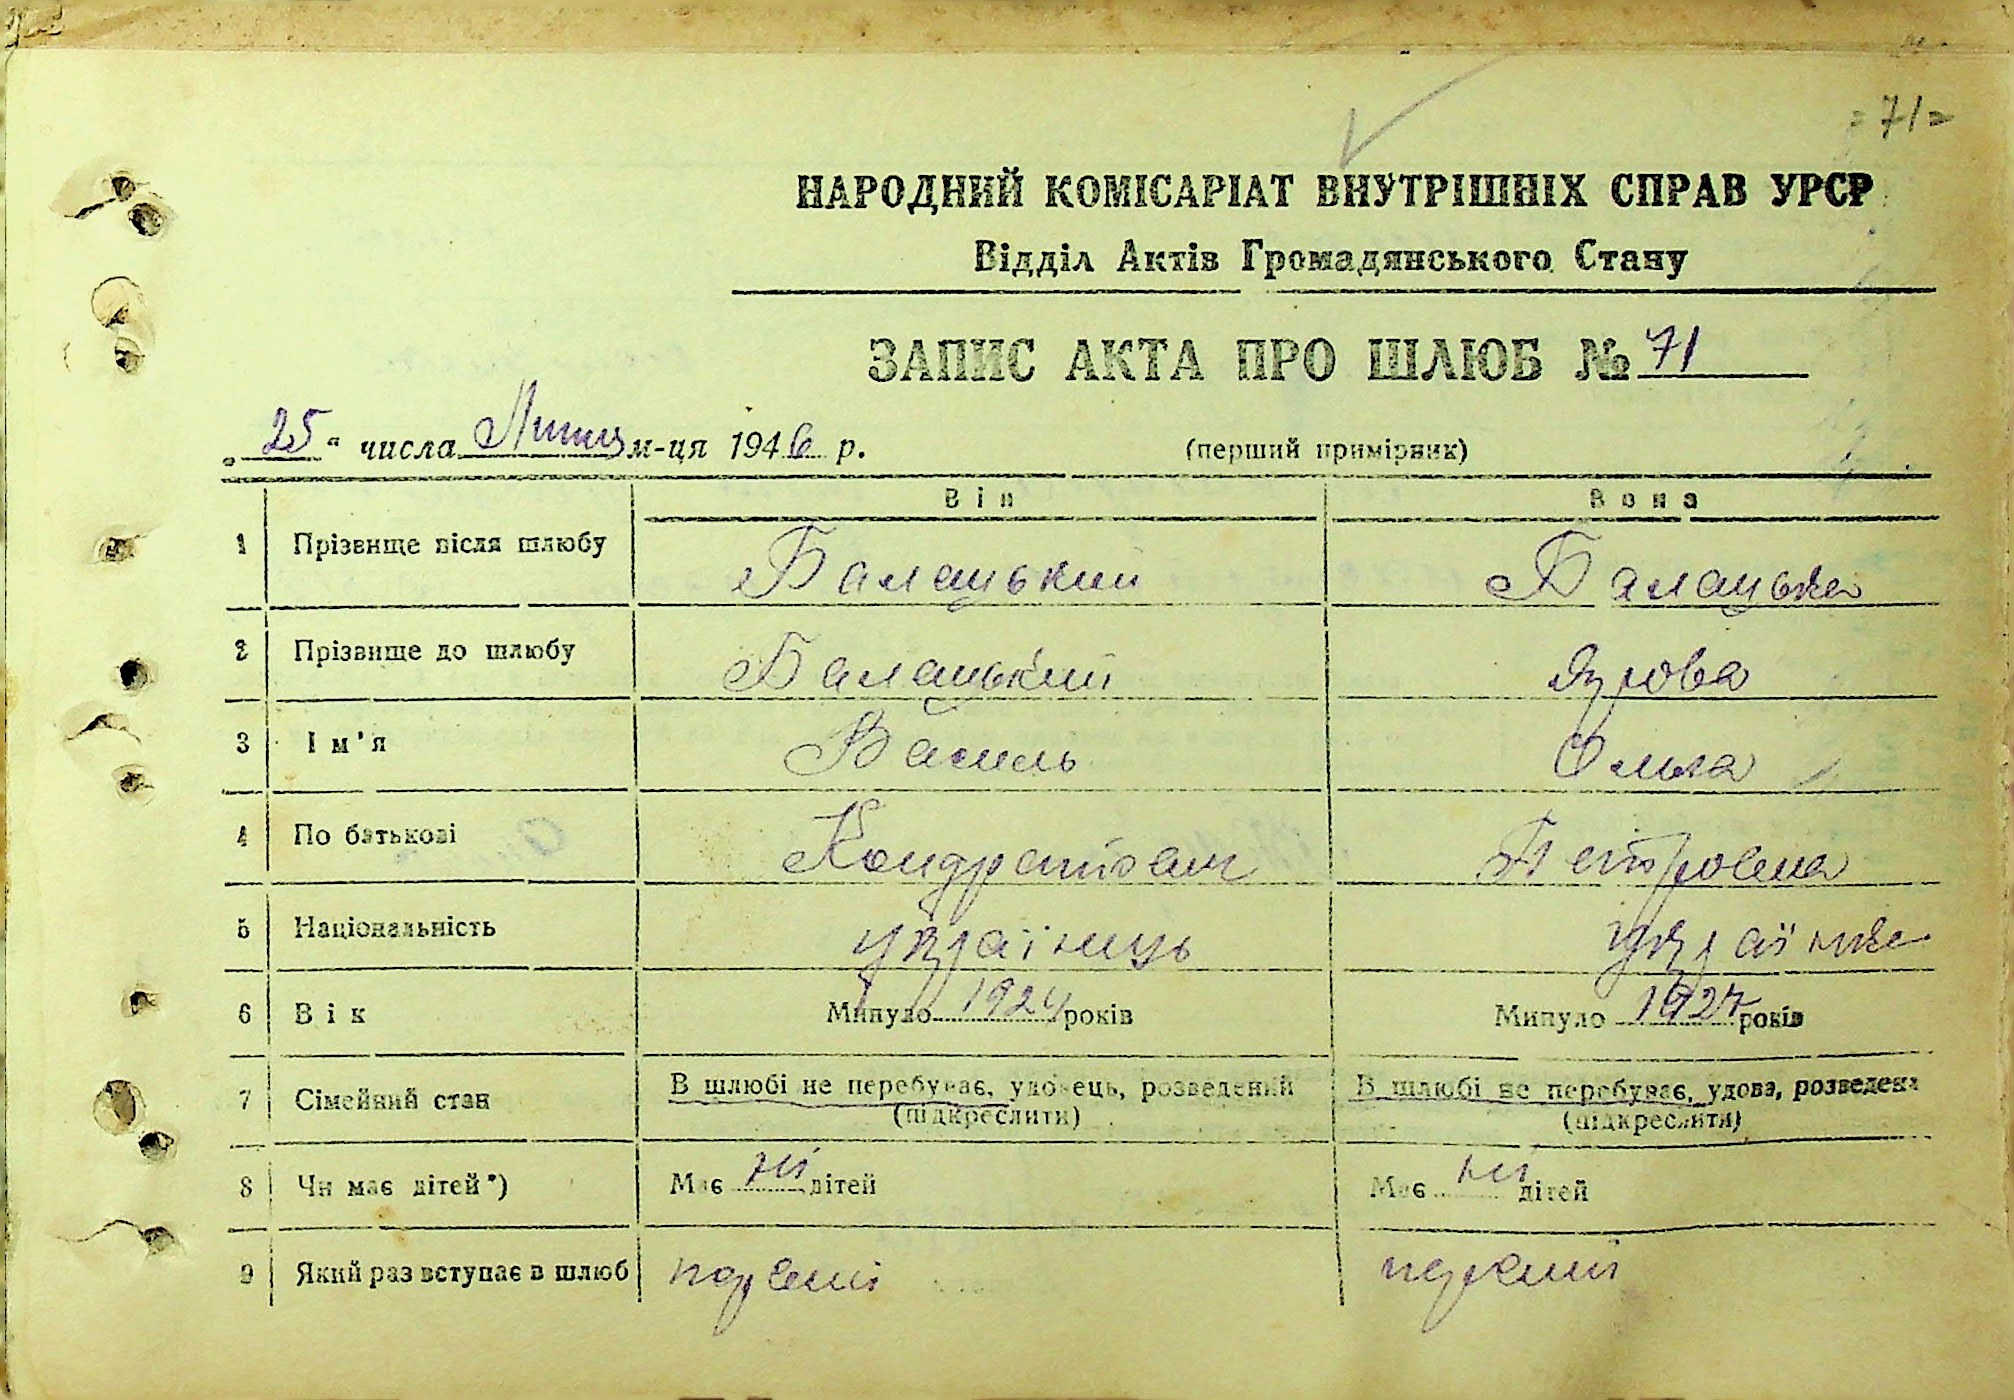 = 71 =
НАРОДНИЙ КОМІСАРІАТ ВНУТРІШНІХ СПРАВ УРСР
Відділ Актів Громадянського Стану
ЗАПИС АКТА ПРО ШЛЮБ № 71
„25“ числа Липня м-ця 1946 р. (перший примірник)
Він Вона
1 Прізвище після шлюбу Балацький Балацька
2 Прізвище до шлюбу Балацький
3 Ім'я Василь Ольга
4 По батькові Кондратович Петровна
5 Національність українець українка
6 Вік Минуло 1924 років Минуло 1927 років
7 Сімейний стан В шлюбі не перебуває, удовець, розведений В шлюбі не перебуває, удова, розведена
(підкреслити) (підкреслити)
8 Чи має дітей*) Має ні дітей Має ні дітей
9 Який раз вступає в шлюб перший перший